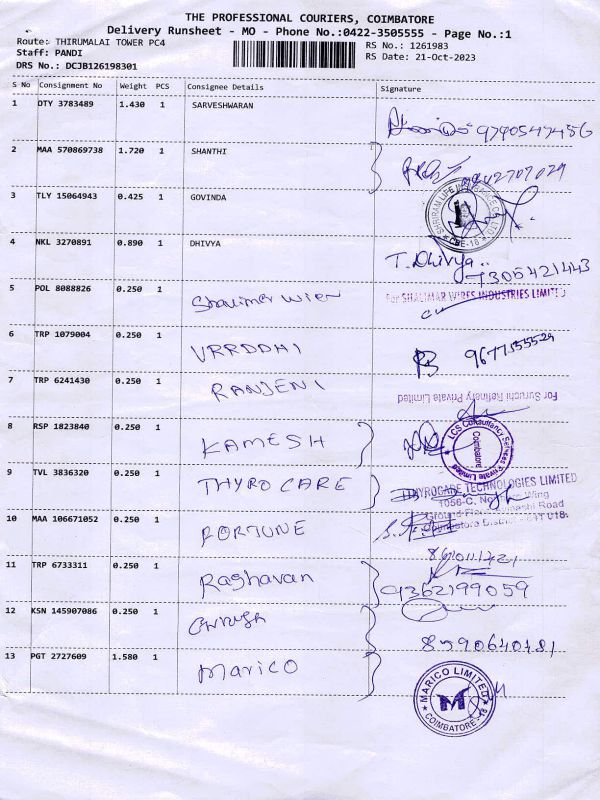 THE PROFESSIONAL COURIERS, COIMBATORE
Delivery Runsheet - MO - Phone No.:0422-3505555 - Page No.:1
Route: THIRUMALAI TOWER PC4
RS No.: 1261983
Staff: PANDI
RS Date: 21-Oct-2023
DRS No.: DCJB126198301
S No Consignment No Weight PCS Consignee Details Signature
1 DTY 3783489 1.430 1 SARVESHWARAN
9790547456
2 MAA 570869738 1.720 1 SHANTHI
3 TLY 15064943 0.425 1 GOVINDA
SHRIRAM LIFE INSURANCE CO. LTD
CBE-18
4 NKL 3270891 0.890 1 DHIVYA
T. Dhivya..
7305421443
5 POL 8088826 0.250 1 Shalimar wier
For SHALIMAR WIRES INDUSTRIES LIMITED
6 TRP 1079004 0.250 1 VRRDDHI
9677555529
7 TRP 6241430 0.250 1 RANJENI
For Suruchi Refinery Private Limited
8 RSP 1823840 0.250 1 KAMESH
LCS Consultancy Services Private Limited
Coimbatore
9 TVL 3836320 0.250 1 THYROCARE
THYROCARE TECHNOLOGIES LIMITED
1056-C, Wing
Ground Floor, Road
Coimbatore District
10 MAA 106671052 0.250 1 FORTUNE
11 TRP 6733311 0.250 1 Raghavan
9362199059
12 KSN 145907086 0.250 1
8590640181
13 PGT 2727609 1.580 1 Marico
MARICO LIMITED
M
COIMBATORE-18